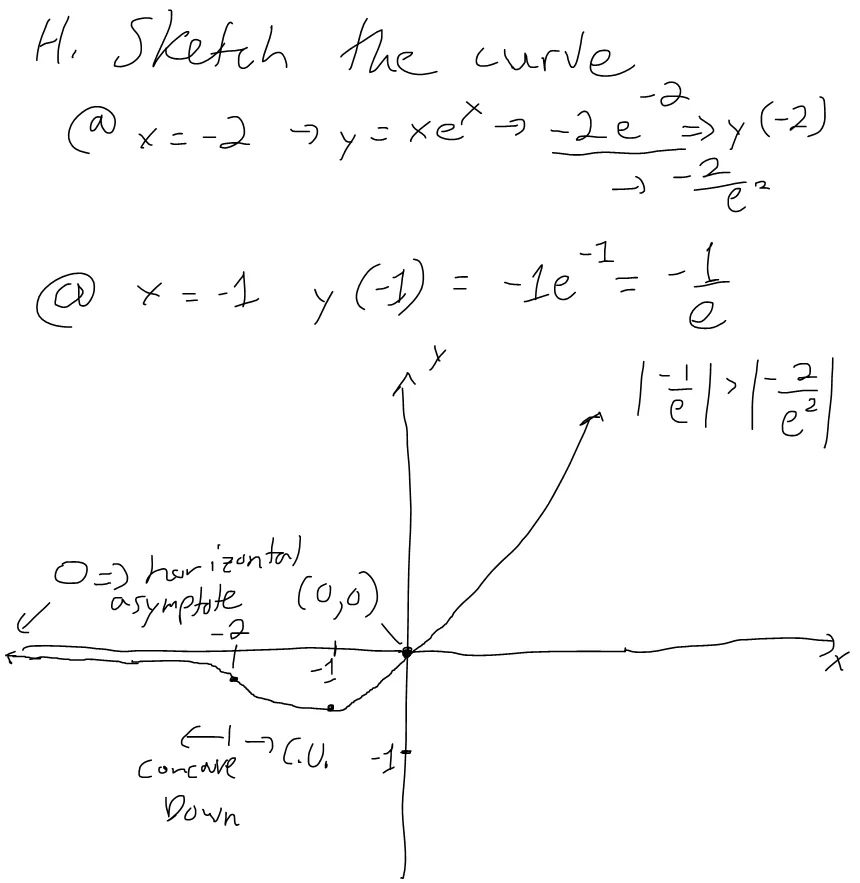 H. Sketch the curve
@ x = -2 → y = xe^x → -2e^-2 ⇒ y(-2)
→ -2/e^2
@ x = -1 y(-1) = -1e^-1 = -1/e
y
|-1/e| > |-2/e^2|
0 ⇒ horizontal
asymptote
(0,0)
-2
-1
x
← | → C.U.
Concave
Down
-1